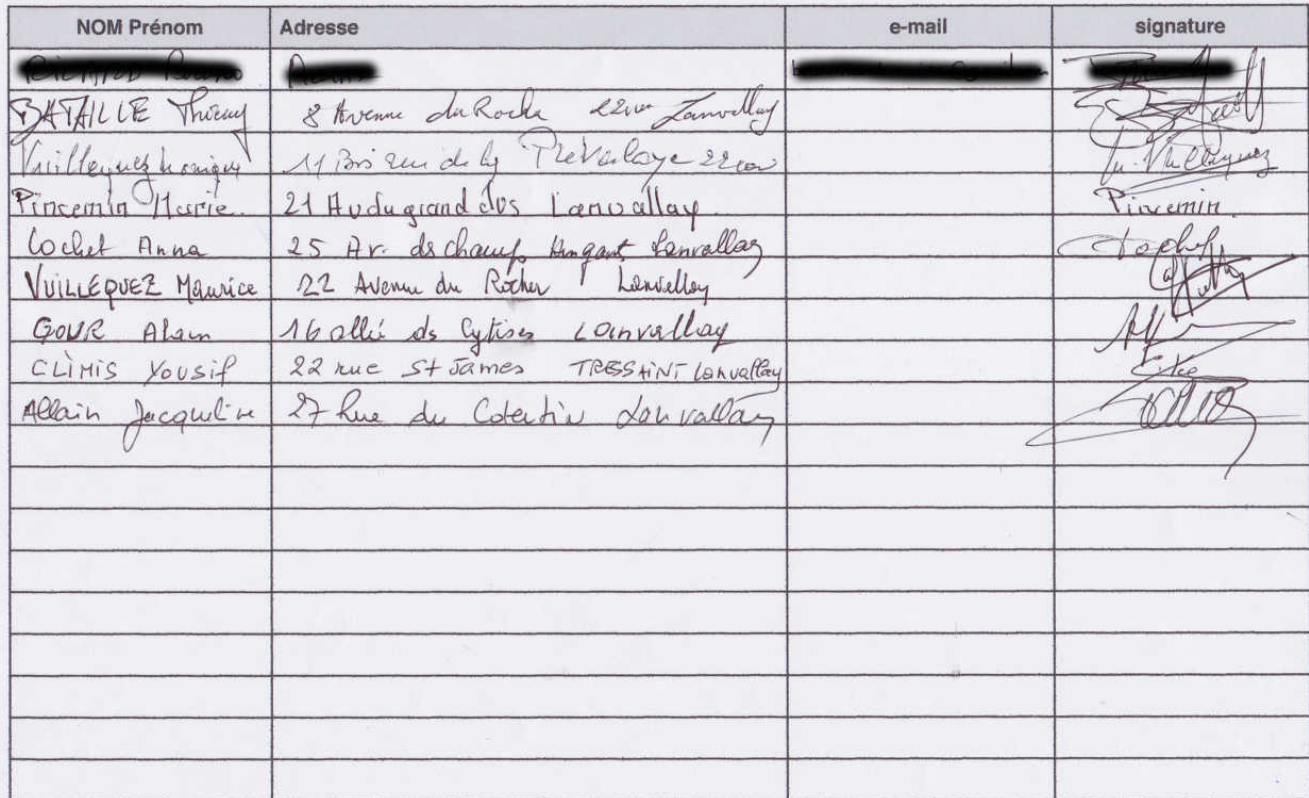 NOM Prénom Adresse e-mail signature
BATAILLE Thierry 8 Avenue du Rocher Lanvallay
Vuillequez Monique 11 Bis rue de la Prévalaye 22100 Vuillequez
Pincemin Marie. 21 Av du grand clos Lanvallay. Pincemin.
Cochet Anna 25 Av. ds champs Lanvallay Cochet
VUILLEQUEZ Maurice 22 Avenue du Rocher Lanvallay
GOUR Alain 16 allée ds Cytises Lanvallay
CLIMIS Yousif 22 rue St James TRESSAINT Lanvallay
Allain Jacqueline 27 Rue du Cotentin Lanvallay